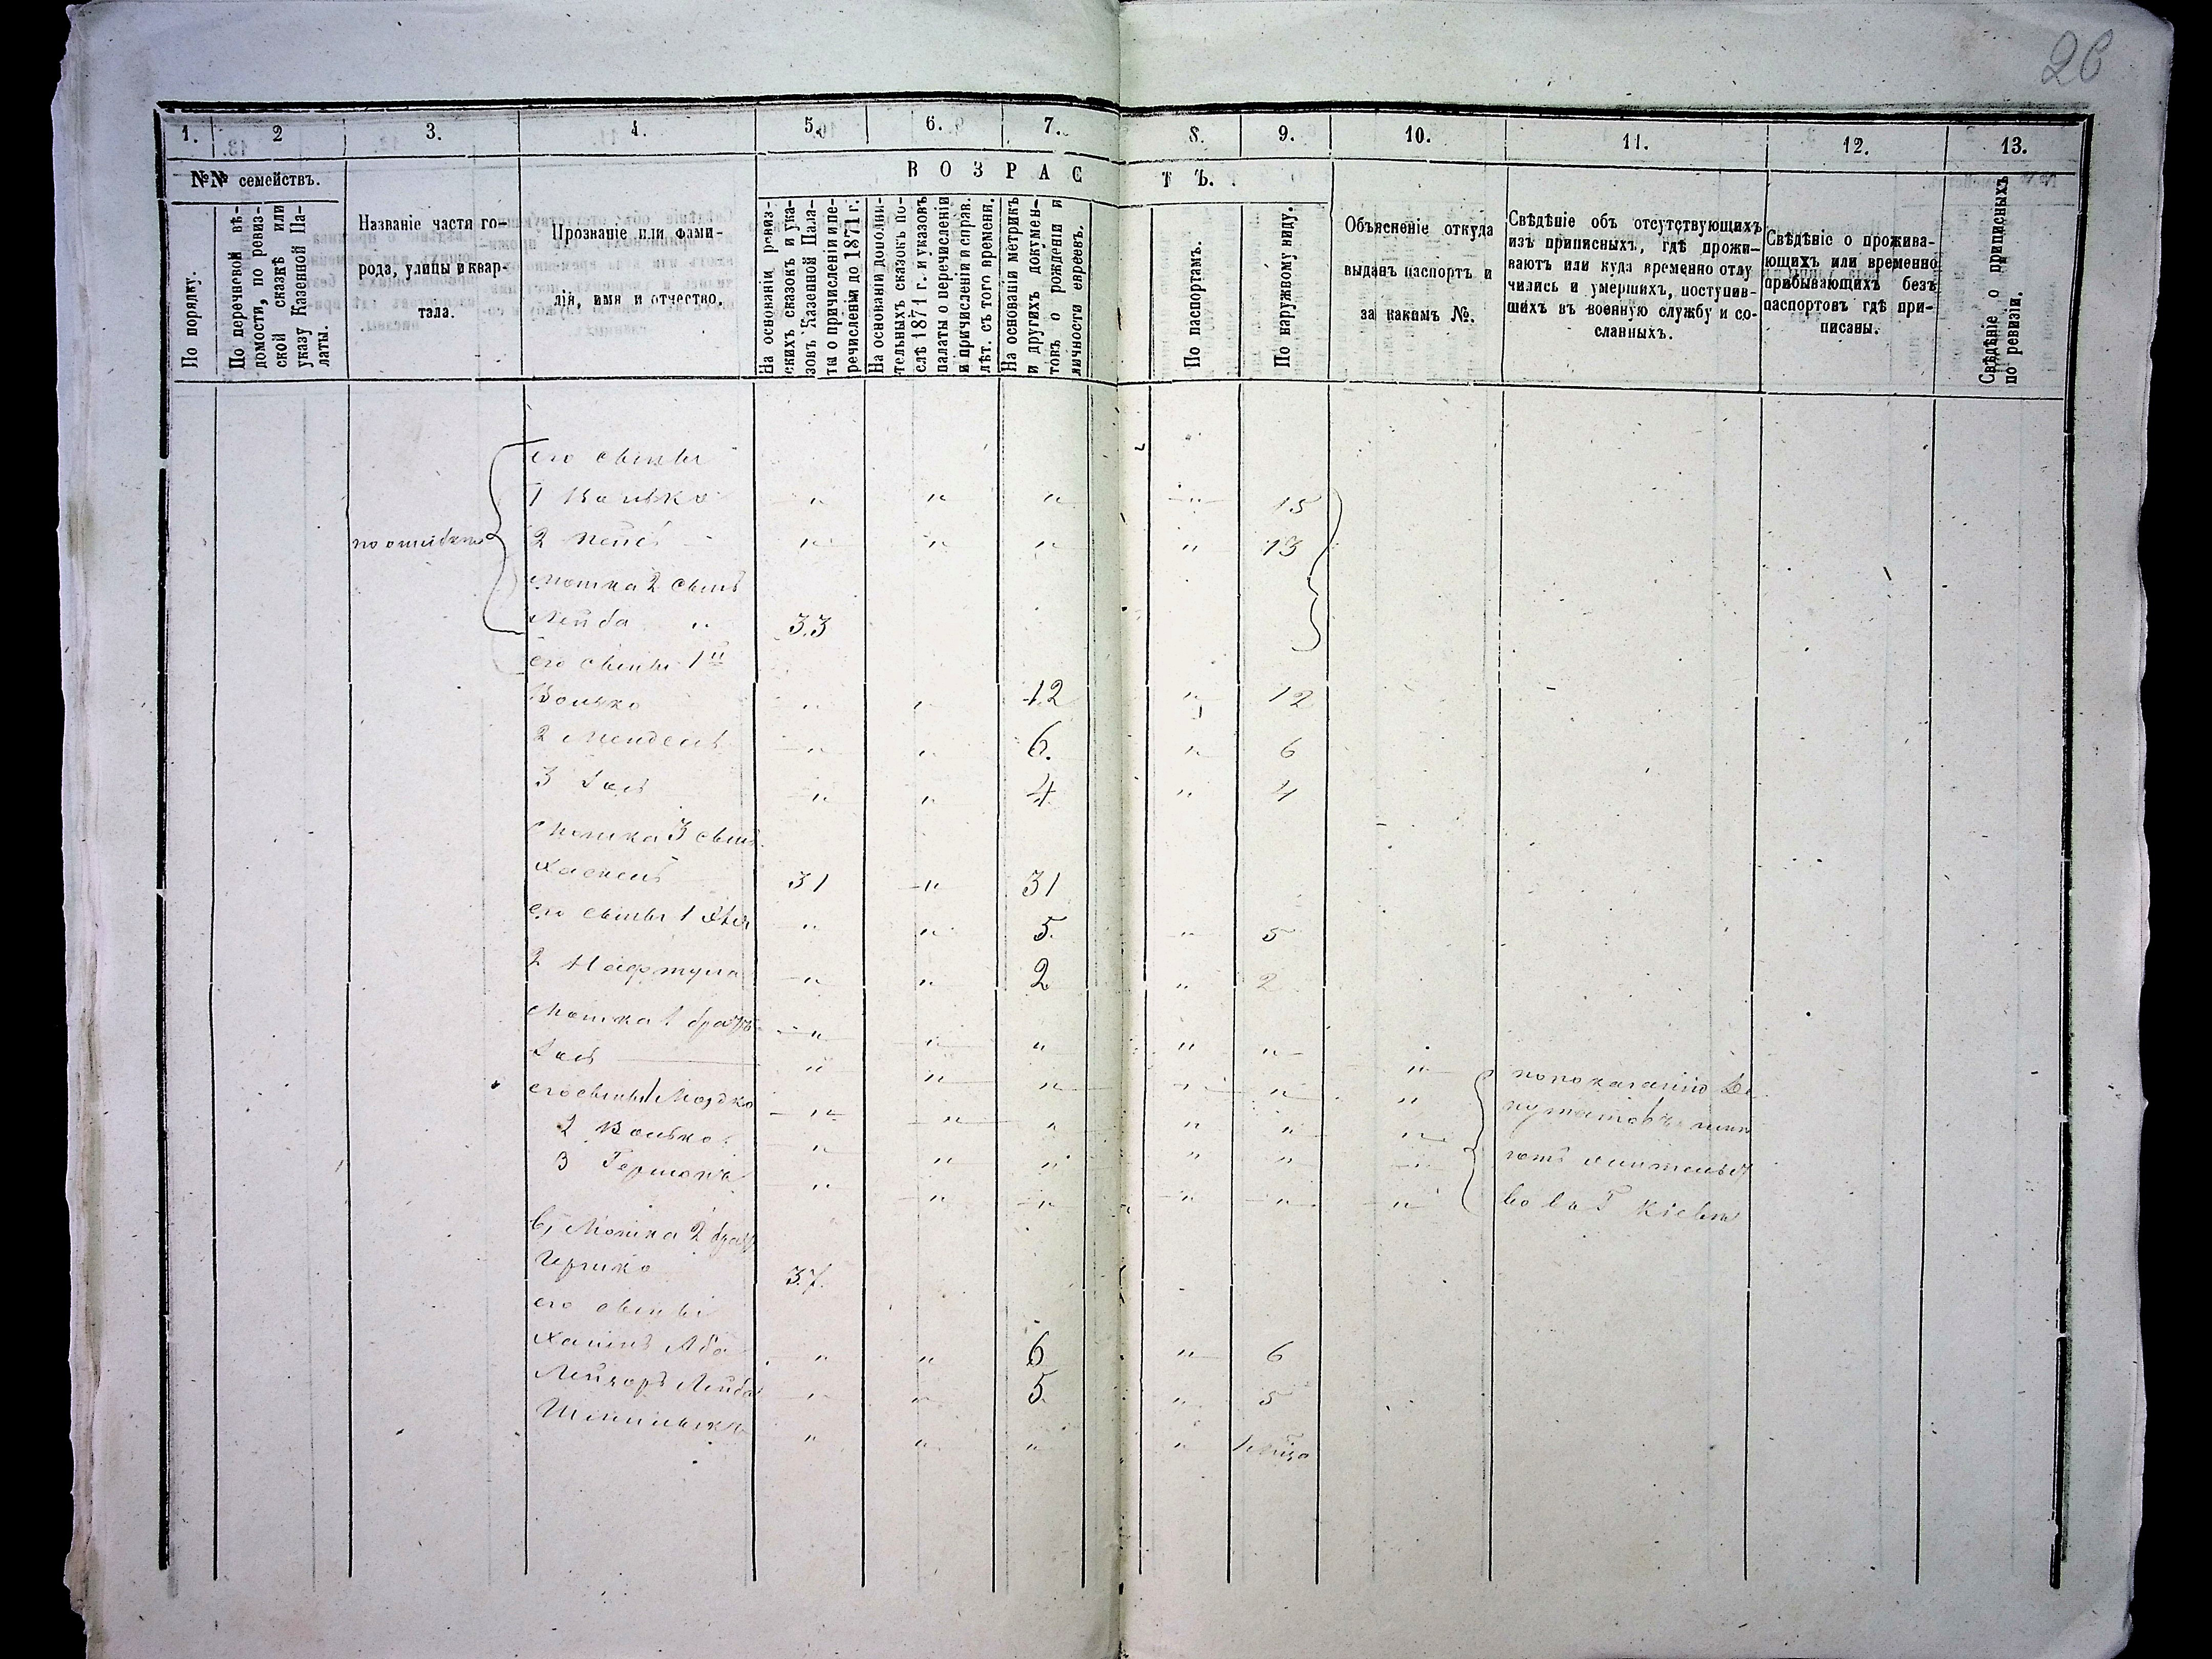 26
1. 2 3. 4. 5. 6. 7. 8. 9. 10. 11. 12. 13.
№№ семействъ.
По порядку.
По перечневой вѣ-
домости, по ревиз-
ской сказкѣ или
указу Казенной Па-
латы.
Названіе части го-
рода, улицы и квар-
тала.
Прозваніе или фами-
лія, имя и отчество.
ВОЗРАСТЪ.
На основаніи ревиз-
скихъ сказокъ и ука-
зовъ Казенной Пала-
ты о причисленіи и пе-
речисленіи до 1871 г.
На основаніи дополни-
тельныхъ сказокъ по-
слѣ 1871 г. и указовъ
палаты о перечисленіи
и причисленіи и справ.
лѣт. съ того времени.
На основаніи метрикъ
и другихъ докумен-
товъ о рожденіи и
личности евреевъ.
По паспортамъ.
По наружному виду.
Объясненіе откуда
выданъ паспортъ и
за какимъ №.
Свѣдѣніе объ отсутствующихъ
изъ приписныхъ, гдѣ прожи-
ваютъ или куда временно отлу
чились и умершихъ, поступив-
шихъ въ военную службу и со-
сланныхъ.
Свѣдѣніе о прожива-
ющихъ или временно
прибывающихъ безъ
паспортовъ гдѣ при-
писаны.
Свѣдѣніе о приписныхъ
по ревизіи.
его сыны
1 Волько " " " " 15
по ошибкѣ
2 " " " " 13
Мошка 2 сынъ
Лейба " 33
его сыны 1й
Волько " " 12 " 12
2 Мендель " " 6. " 6
3 " " 4 " 4
Мошка 3 сынъ
Хаскель 31 " 31
его сыны 1 " " 5. " 5
2 Нафтула " " 2 " 2
Мошка 1 братъ " " " " "
" " " " " "
его сыны 1 Мордко " " " " " "
2 Волько " " " " " "
3 Гершонъ " " " " " "
по показанію Де
путатовъ имѣ
ютъ жительст
во въ Г Кіевѣ
Мошка 2 братъ
Гершко 37.
его сыны
Хаимъ Аба " " 6 " 6
Лейзоръ Лейба " " 5. " 5
" " " " 1